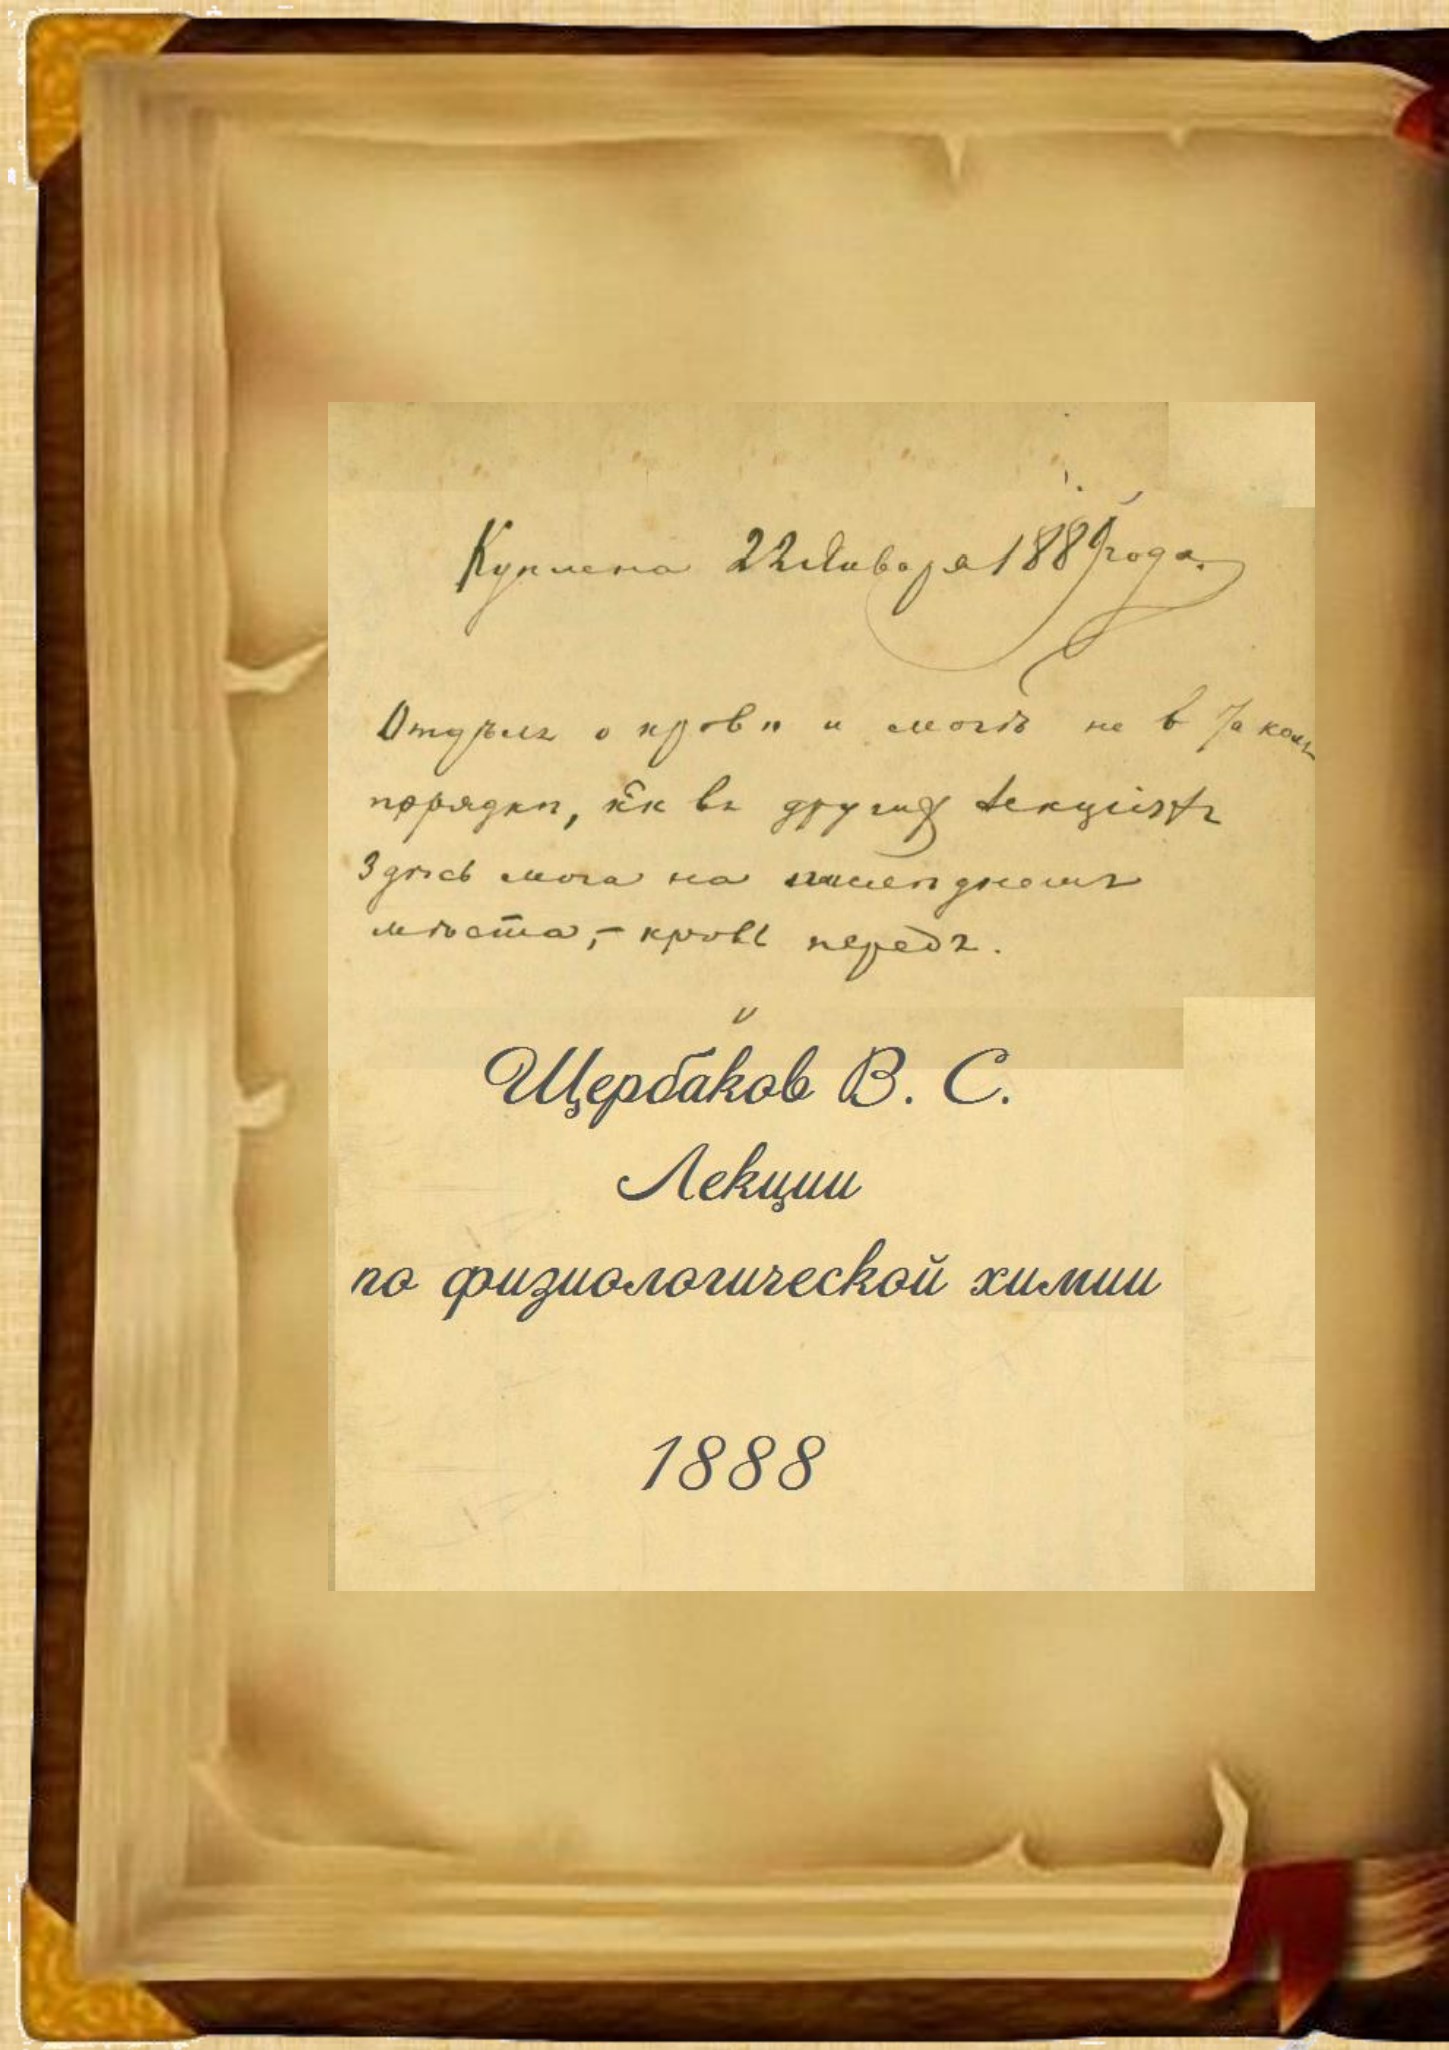 Куплена 22 Января 1889 года.
Отдѣлъ о крови и мочѣ не в такомъ
порядкѣ, к̃к въ других лекціяхъ
Здѣсь моча на послѣднемъ
мѣстѣ, – кровь передъ.
Щербаков В. С.
Лекции
по физиологической химии
1888